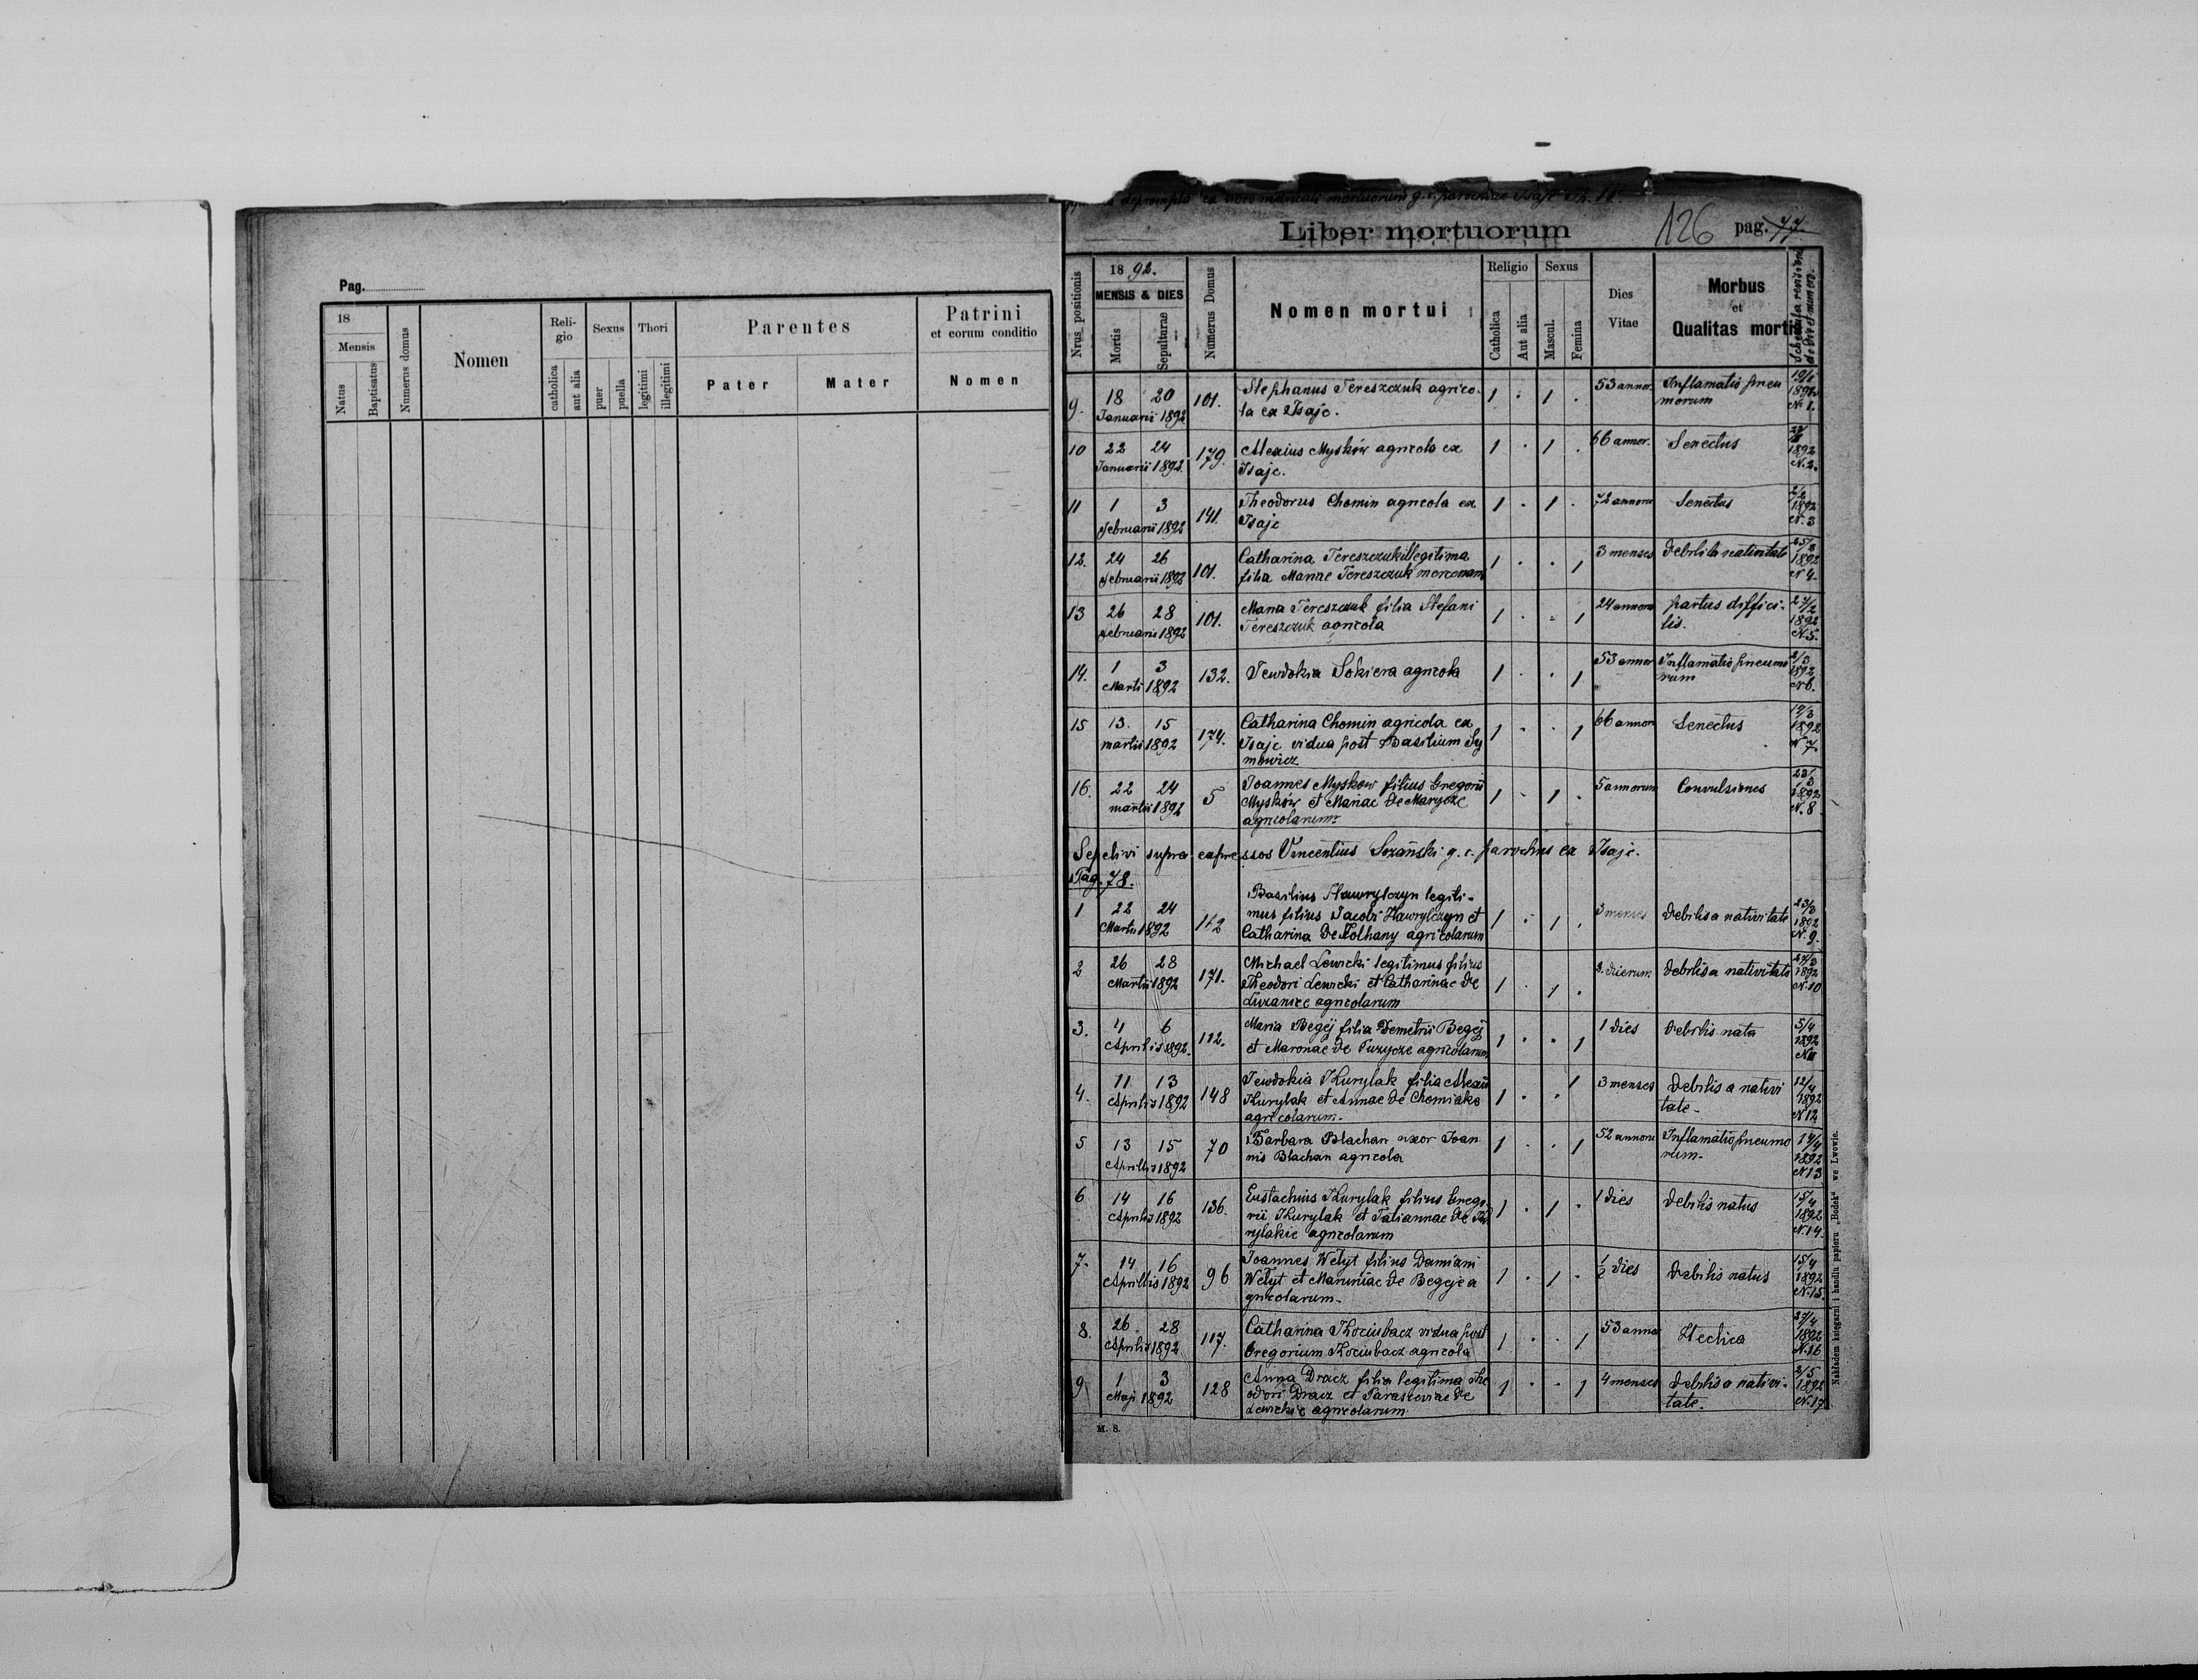 Pag.
18
Mensis
Natus
Baptisatus
Numerus domus
Nomen
Reli-
gio
catholica
aut alia
Sexus
puer
puella
Thori
legitimi
illegitimi
Parentes
Pater
Mater
Patrini
et eorum conditio
Nomen
deprompta ex libro mortuorum g. c. parochiae Isaje
Liber mortuorum
126 pag. 77
Nrus positionis
18 92.
MENSIS & DIES
Mortis
Sepulturae
Numerus Domus
Nomen mortui
Religio
Catholica
Aut alia
Sexus
Mascul.
Femina
Dies
Vitae
Morbus
et
Qualitas mortis
9. 18 20 101. Stephanus Tereszczuk agrico- 1 . 1 . 53 annor. Inflamatio pneu 19/1
Januarii 1892 la ex Isaje. morum 1892 N. 1.
10 22 24 179. Alexius Myśków agricola ex 1 . 1 . 66 annor. Senectus
Januarii 1892 Isaje. 1892 N. 2.
11 1 3 141. Theodorus Chomin agricola ex 1 . 1 . 72 annoru Senectus 2/2
Februarii 1892 Isaje 1892 N. 3
12. 24 26 101. Catharina Tereszczuk illegitima 1 . . 1 3 menses debilita nativitate 25/2
Februarii 1892 filia Mariae Tereszczuk mercenari 1892 N 4.
13 26 28 101. Maria Tereszczuk filia Stefani 1 . . 1 24 annoru partus diffici- 27/2
Februarii 1892 Tereszczuk agricola lis. 1892 N. 5.
14. 1 3 132. Jewdokia Sokiera agricola 1 . . 1 53 annor Inflamatio pneumo 2/3
Marti 1892 rum 1892 N 6.
15 13. 15 174. Catharina Chomin agricola ex 1 . . 1 66 annor Senectus 14/3
martii 1892 Isaje vidua post Basilium Sy 1892
mowicz N 7.
16. 22 24 5 Joannes Myskow filius Gregorii 1 . 1 . 5 annorum Convulsiones 23/3
martii 1892 Myśków et Mariae de Marycze 1892
agricolarum N. 8
Sepelivi supra expressos Vincentius Sozański g. c. parochus ex Isaje.
Pag. 78.
1 22 24 162 Basilius Hawrylczyn legiti- 1 . 1 . 3 menses debilis a nativitate 23/3
Martii 1892 mus filius Jacobi Hawrylczyn et 1892
Catharina de Kolhany agricolarum N. 9.
2 26 28 171. Michael Lewicki legitimus filius 1 . 1 . 2. dierum debilis a nativitate 27/3
Martii 1892 Theodori Lewicki et Catharinae de 1892
Luzaniec agricolarum N. 10
3. 4 6 112. Maria Begej filia Demetrii Begej 1 . . 1 1 dies debilis nata 5/4
Aprilis 1892. et Maronae de Puzycze agricolarum 1892 N 11
4. 11 13 148 Jewdokia Kurylak filia Alexii 1 . . 1 3 menses debilis a nativi 12/4
Aprilis 1892 Kurylak et Annae de Chomiaks tate - 1892
agricolarum. N 12
5 13 15 70 Barbara Blachan uxor Joan 1 . . 1 52 annoru Inflamatio pneumo 14/4
Aprilis 1892 nis Blachan agricola rum - 1892 N 13
6 14 16 136. Eustachius Kurylak filius Grego- 1 . 1 . 1 dies debilis natus 15/4
Aprilis 1892 rii Kurylak et Taliannae de Ku 1892
rylakie agricolarum N. 14.
7. 14 16 96 Joannes Wetyt filius Damiani 1 . 1 . 1/2 dies debilis natus 15/4
Aprilis 1892 Wetyt et Maruniae de Begeje a 1892
gricolarum - N. 15.
8. 26 28 117. Catharina Kociubacz vidua post 1 . . 1 53 annor Hectica 27/4
Aprilis 1892 Gregorium Kociubacz agricola 1892 N. 16
9 1 3 128 Anna Dracz filia legitima The 1 . . 1 4 menses debilis a nativi- 2/5
Maji 1892 odori Dracz et Parasceviae de tate. 1892
Lewickie agricolarum N. 17
M. 8.
Nakładem księgarni i handlu papieru „Bodek" we Lwowie.